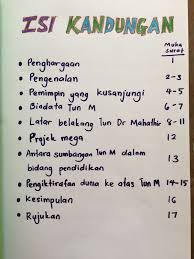 ISI KANDUNGAN
Muka
surat
Penghargaan 1
Pengenalan 2-3
Pemimpin yang kusanjungi 4-5
Biodata Tun M 6-7
Latar belakang Tun Dr Mahathir 8-11
Projek mega 12
Antara sumbangan Tun M dalam 13
bidang pendidikan
Pengiktirafan dunia ke atas Tun M 14-15
Kesimpulan 16
Rujukan 17